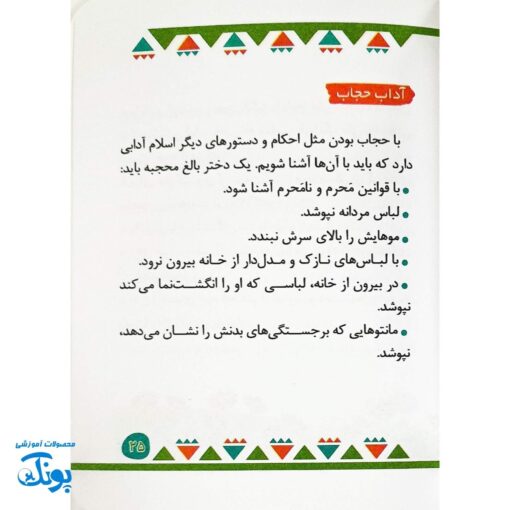 آداب حجاب
با حجاب بودن مثل احکام و دستورهای دیگر اسلام آدابی
دارد که باید با آن‌ها آشنا شویم. یک دختر بالغ محجبه باید:
• با قوانین مَحرم و نامَحرم آشنا شود.
• لباس مردانه نپوشد.
• موهایش را بالای سرش نبندد.
• با لباس‌های نازک و مدل‌دار از خانه بیرون نرود.
• در بیرون از خانه، لباسی که او را انگشت‌نما می‌کند
نپوشد.
• مانتوهایی که برجستگی‌های بدنش را نشان می‌دهد،
نپوشد.
۲۵
محصولات آموزشی
پونک